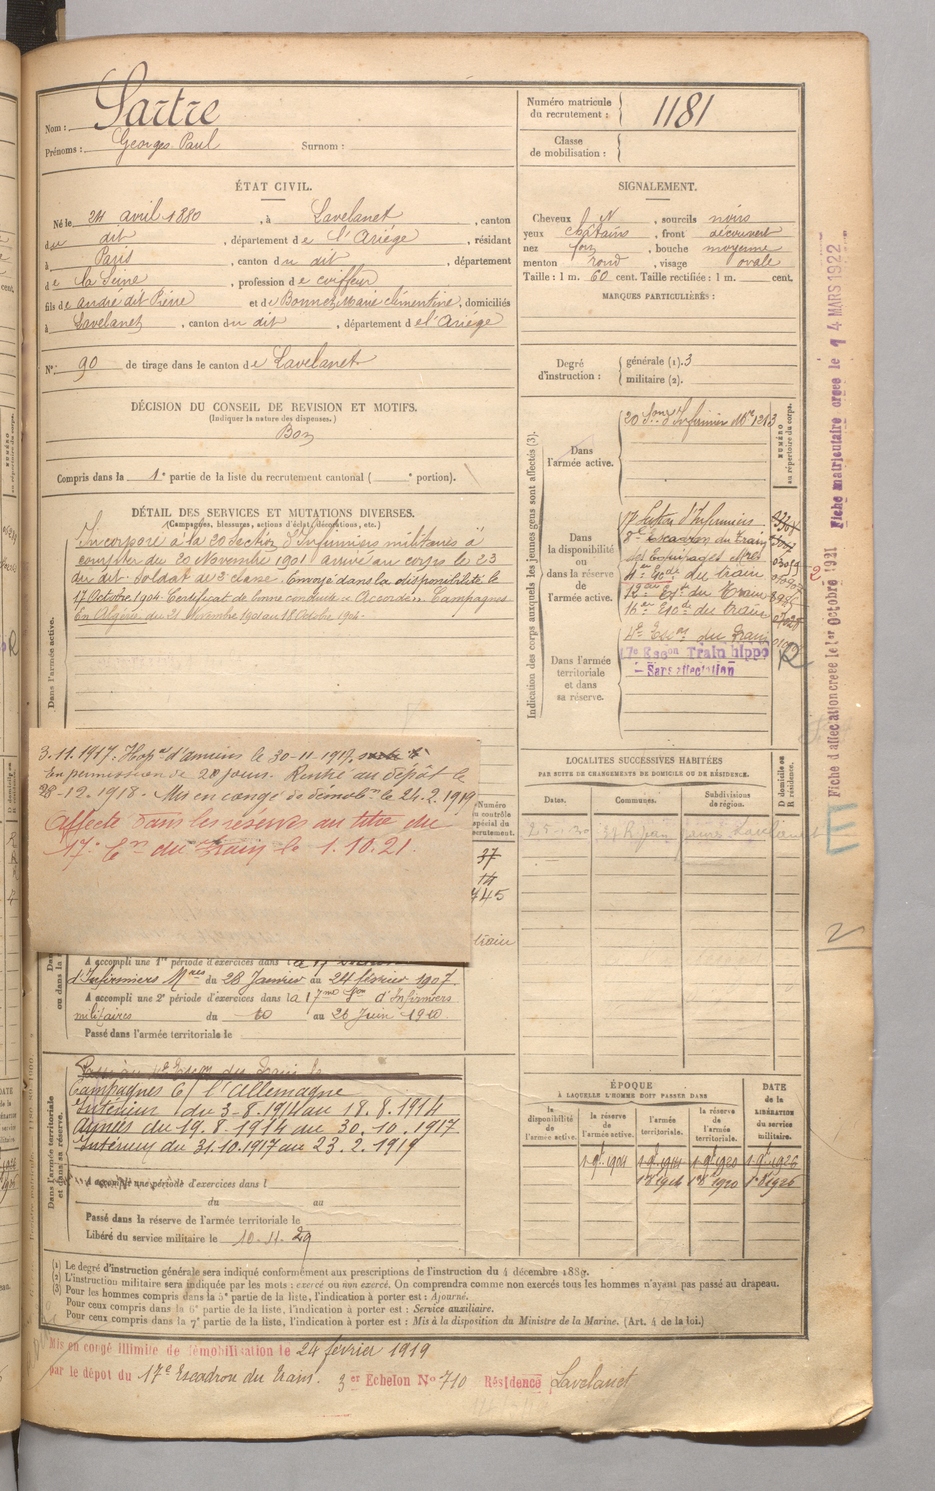 Nom : Sartre
Prénoms : Georges Paul Surnom :
Numéro matricule du recrutement : 1181
Classe de mobilisation :
ÉTAT CIVIL.
Né le 24 avril 1880, à Lavelanet, canton
du dit, département de l'Ariège, résidant
à Paris, canton du dit, département
de la Seine, profession de coiffeur
fils de andré dit Pierre et de Bonnet Marie Clémentine, domiciliés
à Lavelanet, canton du dit, département de l'Ariège
N° 90 de tirage dans le canton de Lavelanet
SIGNALEMENT.
Cheveux N, sourcils noirs
yeux châtains, front découvert
nez, bouche moyenne
menton rond, visage ovale
Taille : 1 m. 60 cent. Taille rectifiée : 1 m. cent.
MARQUES PARTICULIÈRES :
Degré d'instruction : générale (1). 3
militaire (2).
DÉCISION DU CONSEIL DE REVISION ET MOTIFS.
(Indiquer la nature des dispenses.)
Bon
Compris dans la 1e partie de la liste du recrutement cantonal ( e portion).
DÉTAIL DES SERVICES ET MUTATIONS DIVERSES.
(Campagnes, blessures, actions d'éclat, décorations, etc.)
Dans l'armée active.
Incorporé à la 20 Section d'Infirmiers militaires à
compter du 20 Novembre 1901 arrivé au corps le 23
du dit. Soldat de 2e classe. Envoyé dans la disponibilité le
17 Octobre 1904. Certificat de bonne conduite "Accordé". Campagnes
En Algérie du 21 Novembre 1901 au 18 Octobre 1904.
Indication des corps auxquels les jeunes gens sont affectés (3).
NUMÉRO au répertoire du corps.
Dans l'armée active.
20 Son d'Infirmier Mre 1213
Dans la disponibilité ou dans la réserve de l'armée active.
17e Section d'Infirmiers
Escadron du Train
des Equipages Mres
du train
du Train
du train
Dans l'armée territoriale et dans sa réserve.
du Train
17e Escon Train hippo
Sans affectation
R
Fiche matriculaire créée le 4 MARS 1922
Fiche d'affectation créée le 1er Octobre 1921
3.11.1917. Hopal d'amiens le 30-11-1917.
En permission de 20 jours. Rentré au dépôt le
28-12-1918. Mis en congé de démoblon le 24.2.1919
Affecté dans les réserves au titre du
17e En du Train le 1.10.21.
Numéro au contrôle spécial du recrutement.
37
745
LOCALITÉS SUCCESSIVES HABITÉES
PAR SUITE DE CHANGEMENTS DE DOMICILE OU DE RÉSIDENCE.
Dates. Communes. Subdivisions de région. D domicile ou R résidence.
A accompli une 1re période d'exercices dans la
d'Infirmiers Mres du 28 Janvier au 24 février 1907.
A accompli une 2e période d'exercices dans la 17me Son d'Infirmiers
militaires du 10 au 26 Juin 1910.
Passé dans l'armée territoriale le
Dans l'armée territoriale et dans sa réserve.
Campagnes C/ l'Allemagne
Intérieur du 3-8.1914 au 18.8.1914
Armées du 19.8.1914 au 30.10.1917
Intérieur du 31.10.1917 au 23.2.1919
A accompli une période d'exercices dans l
du au
Passé dans la réserve de l'armée territoriale le
Libéré du service militaire le 10-11-29
ÉPOQUE
À LAQUELLE L'HOMME DOIT PASSER DANS
la disponibilité de l'armée active. la réserve de l'armée active. l'armée territoriale. la réserve de l'armée territoriale. DATE de la LIBÉRATION du service militaire.
1.9bre 1904 1.9bre 1914 1.9bre 1920 1.9bre 1926
(1) Le degré d'instruction générale sera indiqué conformément aux prescriptions de l'instruction du 4 décembre 1889.
(2) L'instruction militaire sera indiquée par les mots : exercé ou non exercé. On comprendra comme non exercés tous les hommes n'ayant pas passé au drapeau.
(3) Pour les hommes compris dans la 5e partie de la liste, l'indication à porter est : Ajourné.
Pour ceux compris dans la 6e partie de la liste, l'indication à porter est : Service auxiliaire.
Pour ceux compris dans la 7e partie de la liste, l'indication à porter est : Mis à la disposition du Ministre de la Marine. (Art. 4 de la loi.)
Mis en congé illimité de démobilisation le 24 février 1919
par le dépôt du 17e Escadron du train. 3er Echelon No 710 Résidence Lavelanet